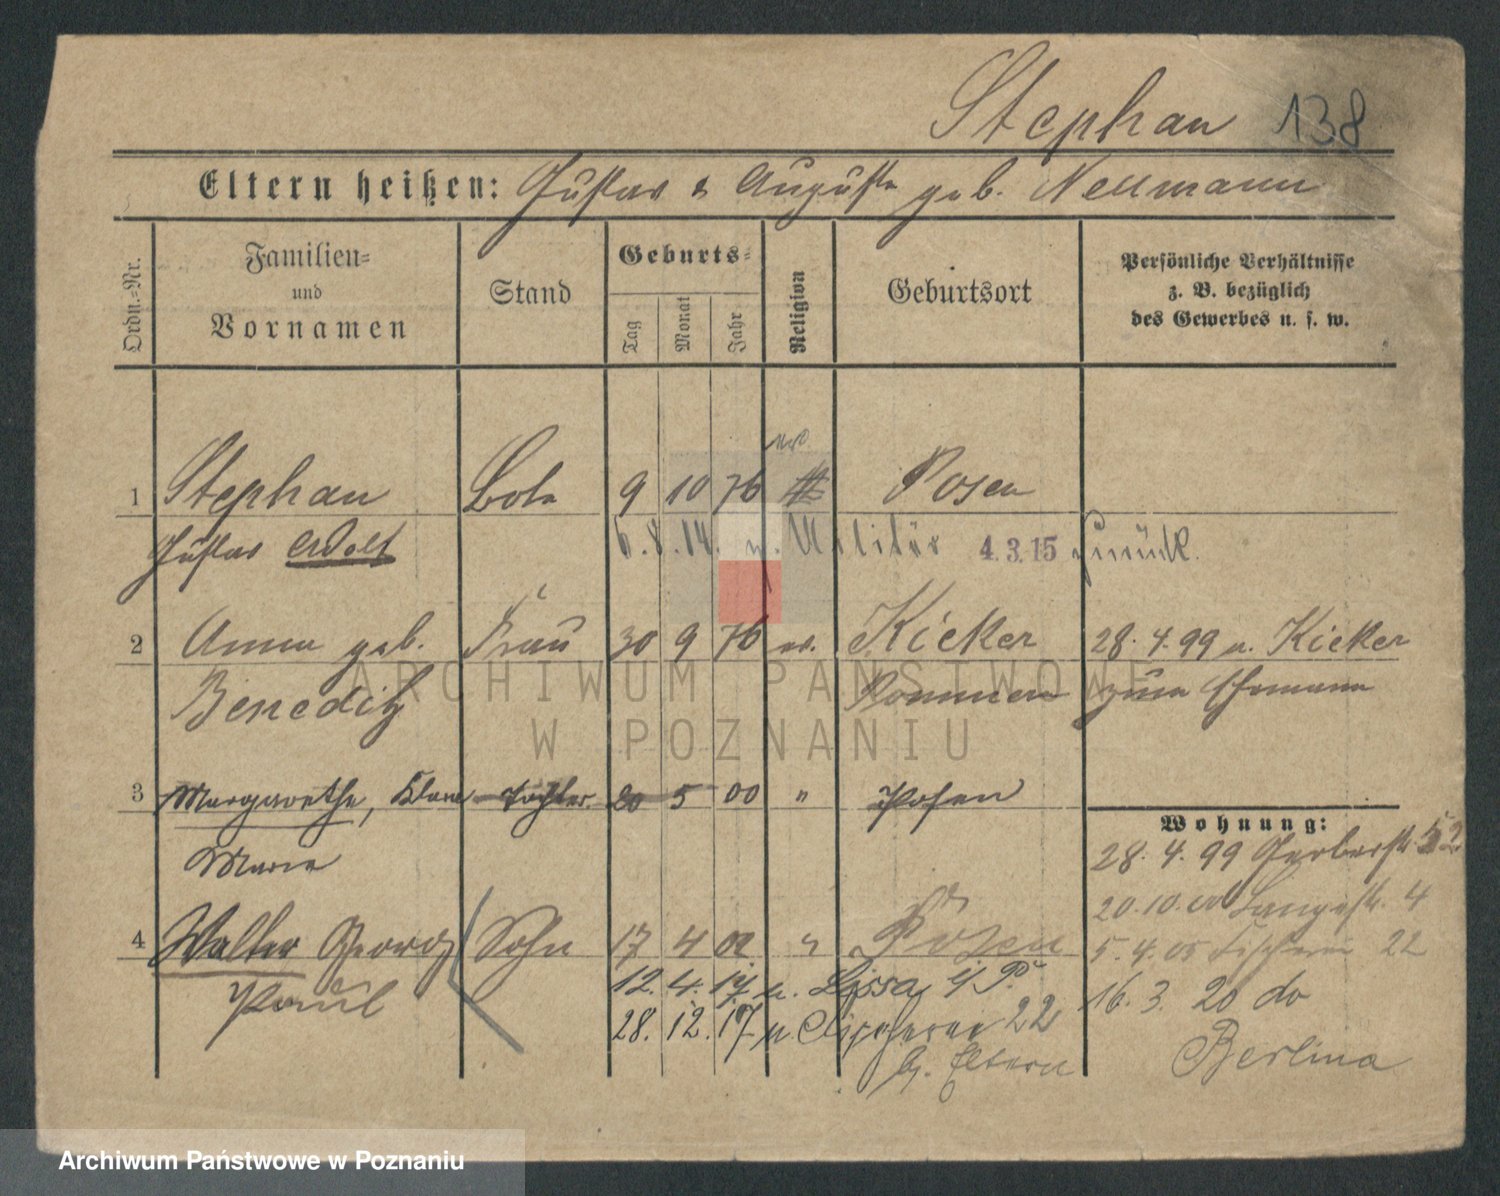 Stephan 138
Eltern heißen: Gustav & Auguste geb. Nellmann
Ordn.-Nr.
Familien-
und
Vornamen
Stand
Geburts-
Tag
Monat
Jahr
Religion
Geburtsort
Persönliche Verhältnisse
z. B. bezüglich
des Gewerbes u. s. w.
1 Stephan 9 10 76 Posen
Gustav Adolf 6.8.14. z. Militär 4.3.15 zurück.
2 Anna geb. Frau 30 9 76 ev. Kicker 28.4.99 v. Kicker
Beneditz Pommern zum Ehemann
3 Margarethe, Klara Tochter 20 5 00 " Posen
Marie
Wohnung:
28.4.99 Gerberstr.
20.10.00 Langestr. 4
4 Walter Georg Sohn 17 4 02 " Posen 5.4.05 Fischerei 22
Paul 12.4.17 n. Lissa i/P. 16.3.20 do
28.12.17 v. Fischerei 22
b. Eltern Berlina
ARCHIWUM PAŃSTWOWE
W POZNANIU
Archiwum Państwowe w Poznaniu